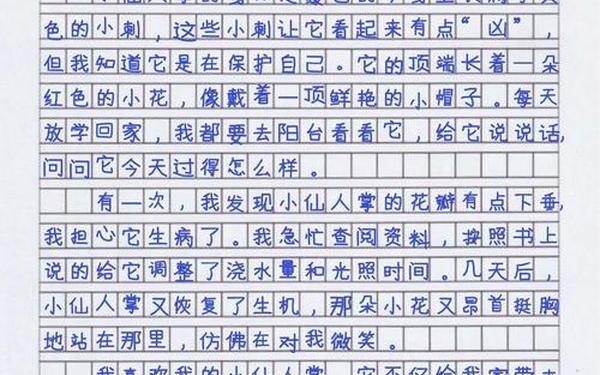 色的小刺，这些小刺让它看起来有点“凶”，
但我知道它是在保护自己。它的顶端长着一朵
红色的小花，像戴着一顶鲜艳的小帽子。每天
放学回家，我都要去阳台看看它，给它说说话，
问问它今天过得怎么样。
有一次，我发现小仙人掌的花瓣有点下垂，
我担心它生病了。我急忙查阅资料，按照书上
说的给它调整了浇水量和光照时间。几天后，
小仙人掌又恢复了生机，那朵小花又昂首挺胸
地站在那里，仿佛在对我微笑。
我喜欢我的小仙人掌，它不仅给我家带来